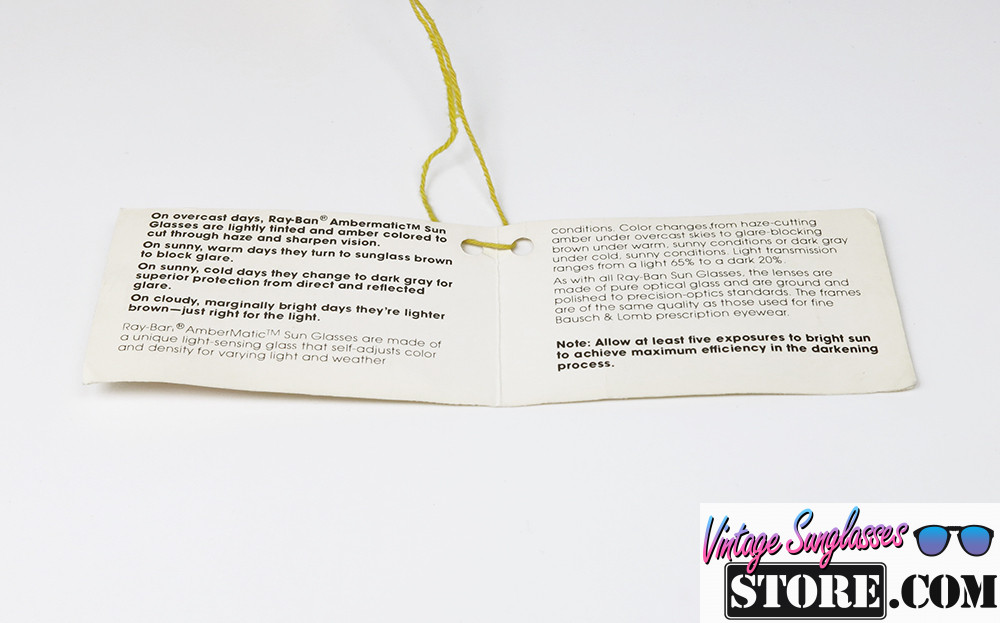 On overcast days, Ray-Ban® Ambermatic™ Sun
Glasses are lightly tinted and amber colored to
cut through haze and sharpen vision.
On sunny, warm days they turn to sunglass brown
to block glare.
On sunny, cold days they change to dark gray for
superior protection from direct and reflected
glare.
On cloudy, marginally bright days they're lighter
brown—just right for the light.
Ray-Ban® AmberMatic™ Sun Glasses are made of
a unique light-sensing glass that self-adjusts color
and density for varying light and weather
conditions. Color changes from haze-cutting
amber under overcast skies to glare-blocking
brown under warm, sunny conditions or dark gray
under cold, sunny conditions. Light transmission
ranges from a light 65% to a dark 20%.
As with all Ray-Ban Sun Glasses, the lenses are
made of pure optical glass and are ground and
polished to precision-optics standards. The frames
are of the same quality as those used for fine
Bausch & Lomb prescription eyewear.
Note: Allow at least five exposures to bright sun
to achieve maximum efficiency in the darkening
process.
Vintage Sunglasses
STORE.COM